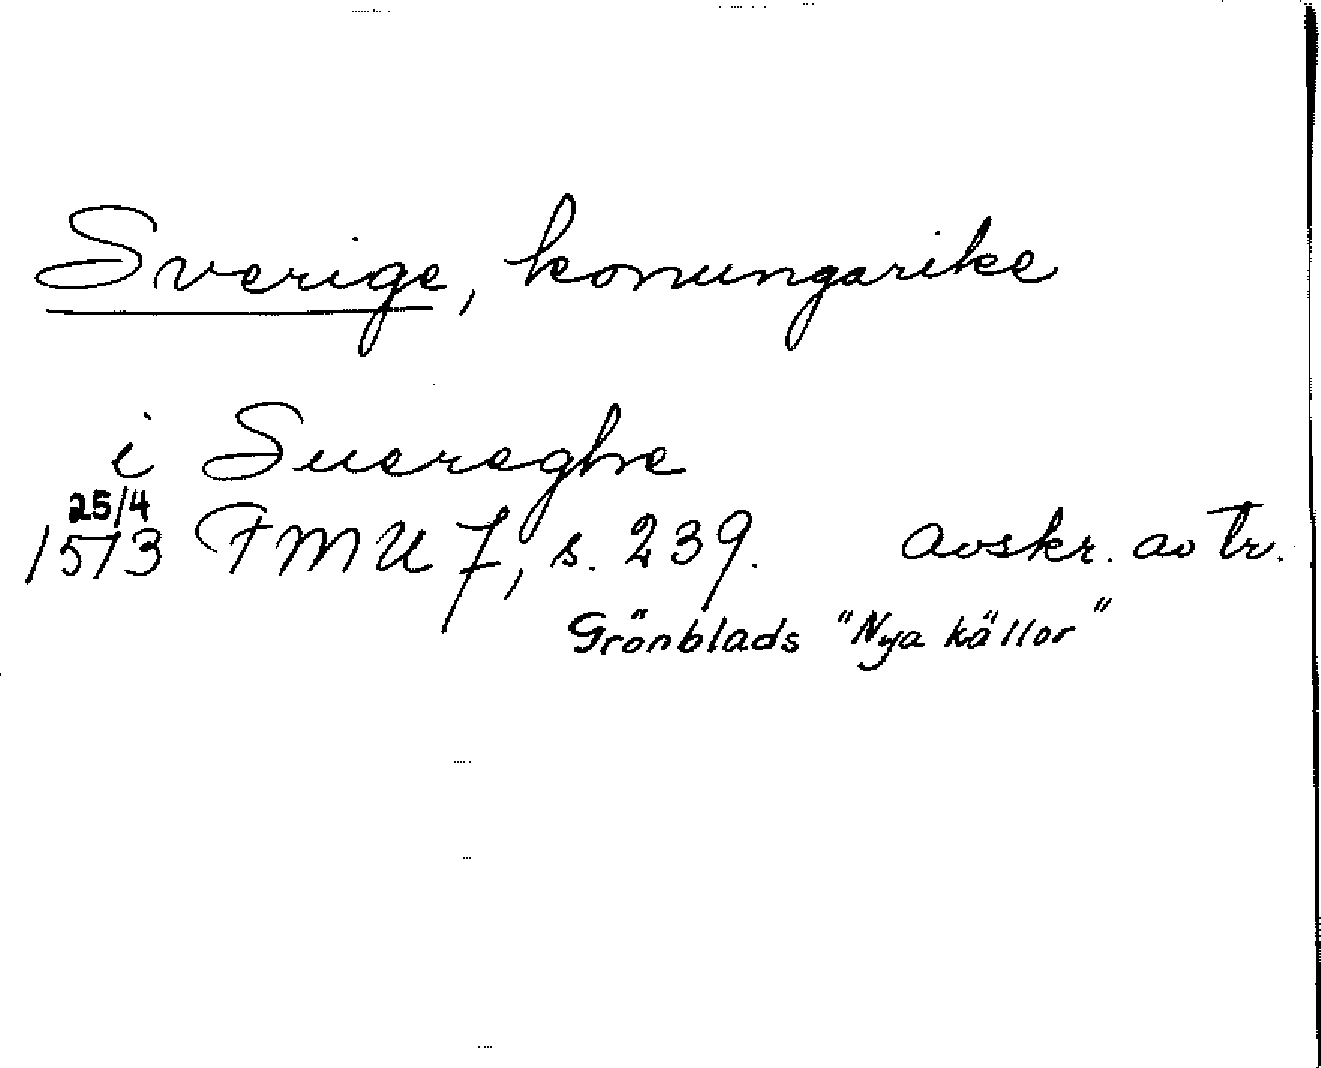 Sverige, konungarike
i Sueraghe
25/4
1513 FMU 7, s. 239. avskr. av tr.
Grönblads "Nya källor"